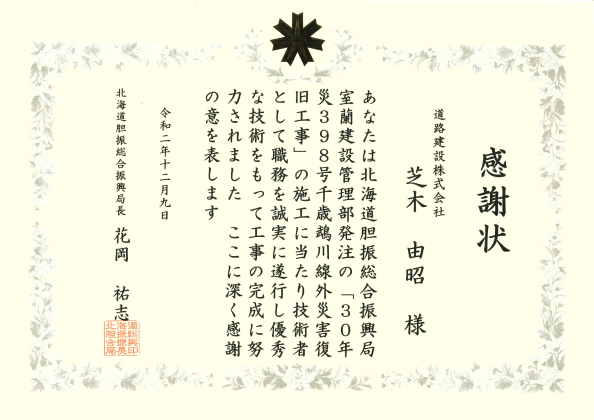 感謝状
道路建設株式会社
芝木 由昭 様
あなたは北海道胆振総合振興局
室蘭建設管理部発注の「３０年
災３９８号千歳鵡川線外災害復
旧工事」の施工に当たり技術者
として職務を誠実に遂行し優秀
な技術をもって工事の完成に努
力されました ここに深く感謝
の意を表します
令和二年十二月九日
北海道胆振総合振興局長 花岡 祐志